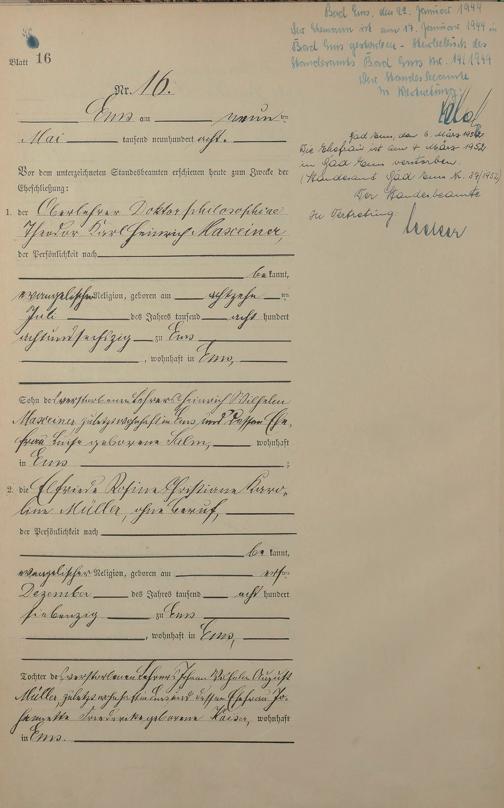 Blatt 16
Nr. 16.
Ems am neunten
Mai tausend neunhundert acht.
Vor dem unterzeichneten Standesbeamten erschienen heute zum Zwecke der
Eheschließung:
1. der Oberlehrer Doktor philosophiae
Theodor Karl Heinrich Maxeiner,
der Persönlichkeit nach
bekannt,
evangelischer Religion, geboren am achtzehnten
Juli des Jahres tausend acht hundert
achtundsechszig zu Ems
, wohnhaft in Ems,
Sohn des verstorbenen Lehrers Heinrich Wilhelm
Maxeiner, zuletzt wohnhaft in Ems und dessen Ehe-
frau Luise geborene wohnhaft
in Ems ;
2. die Elfriede Rosine Christiane Karo-
line Müller, ohne Beruf,
der Persönlichkeit nach
bekannt,
evangelischer Religion, geboren am
Dezember des Jahres tausend acht hundert
siebenzig zu Ems
, wohnhaft in Ems,
Tochter des verstorbenen Lehrers Johann Wilhelm August
Müller, zuletzt wohnhaft in Ems und dessen Ehefrau Jo-
hannette Friederike geborene Kaiser, wohnhaft
in Ems.
Bad Ems, den 22. Januar 1944
Der Ehemann ist am 17. Januar 1944 in
Bad Ems gestorben - Sterbebuch des
Standesamts Bad Ems Nr. 14/1944
Der Standesbeamte
In Vertretung:
Bad Ems, den 6. März 1952
Die Ehefrau ist am 4. März 1952
in Bad Ems verstorben.
(Standesamt Bad Ems N. 39/1952)
Der Standesbeamte
In Vertretung